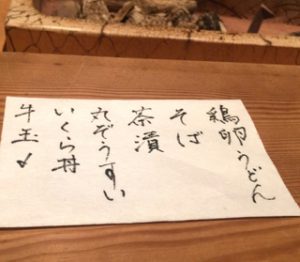 鶏卵うどん
そば
茶漬
丸ぞうすい
いくら丼
牛玉〆